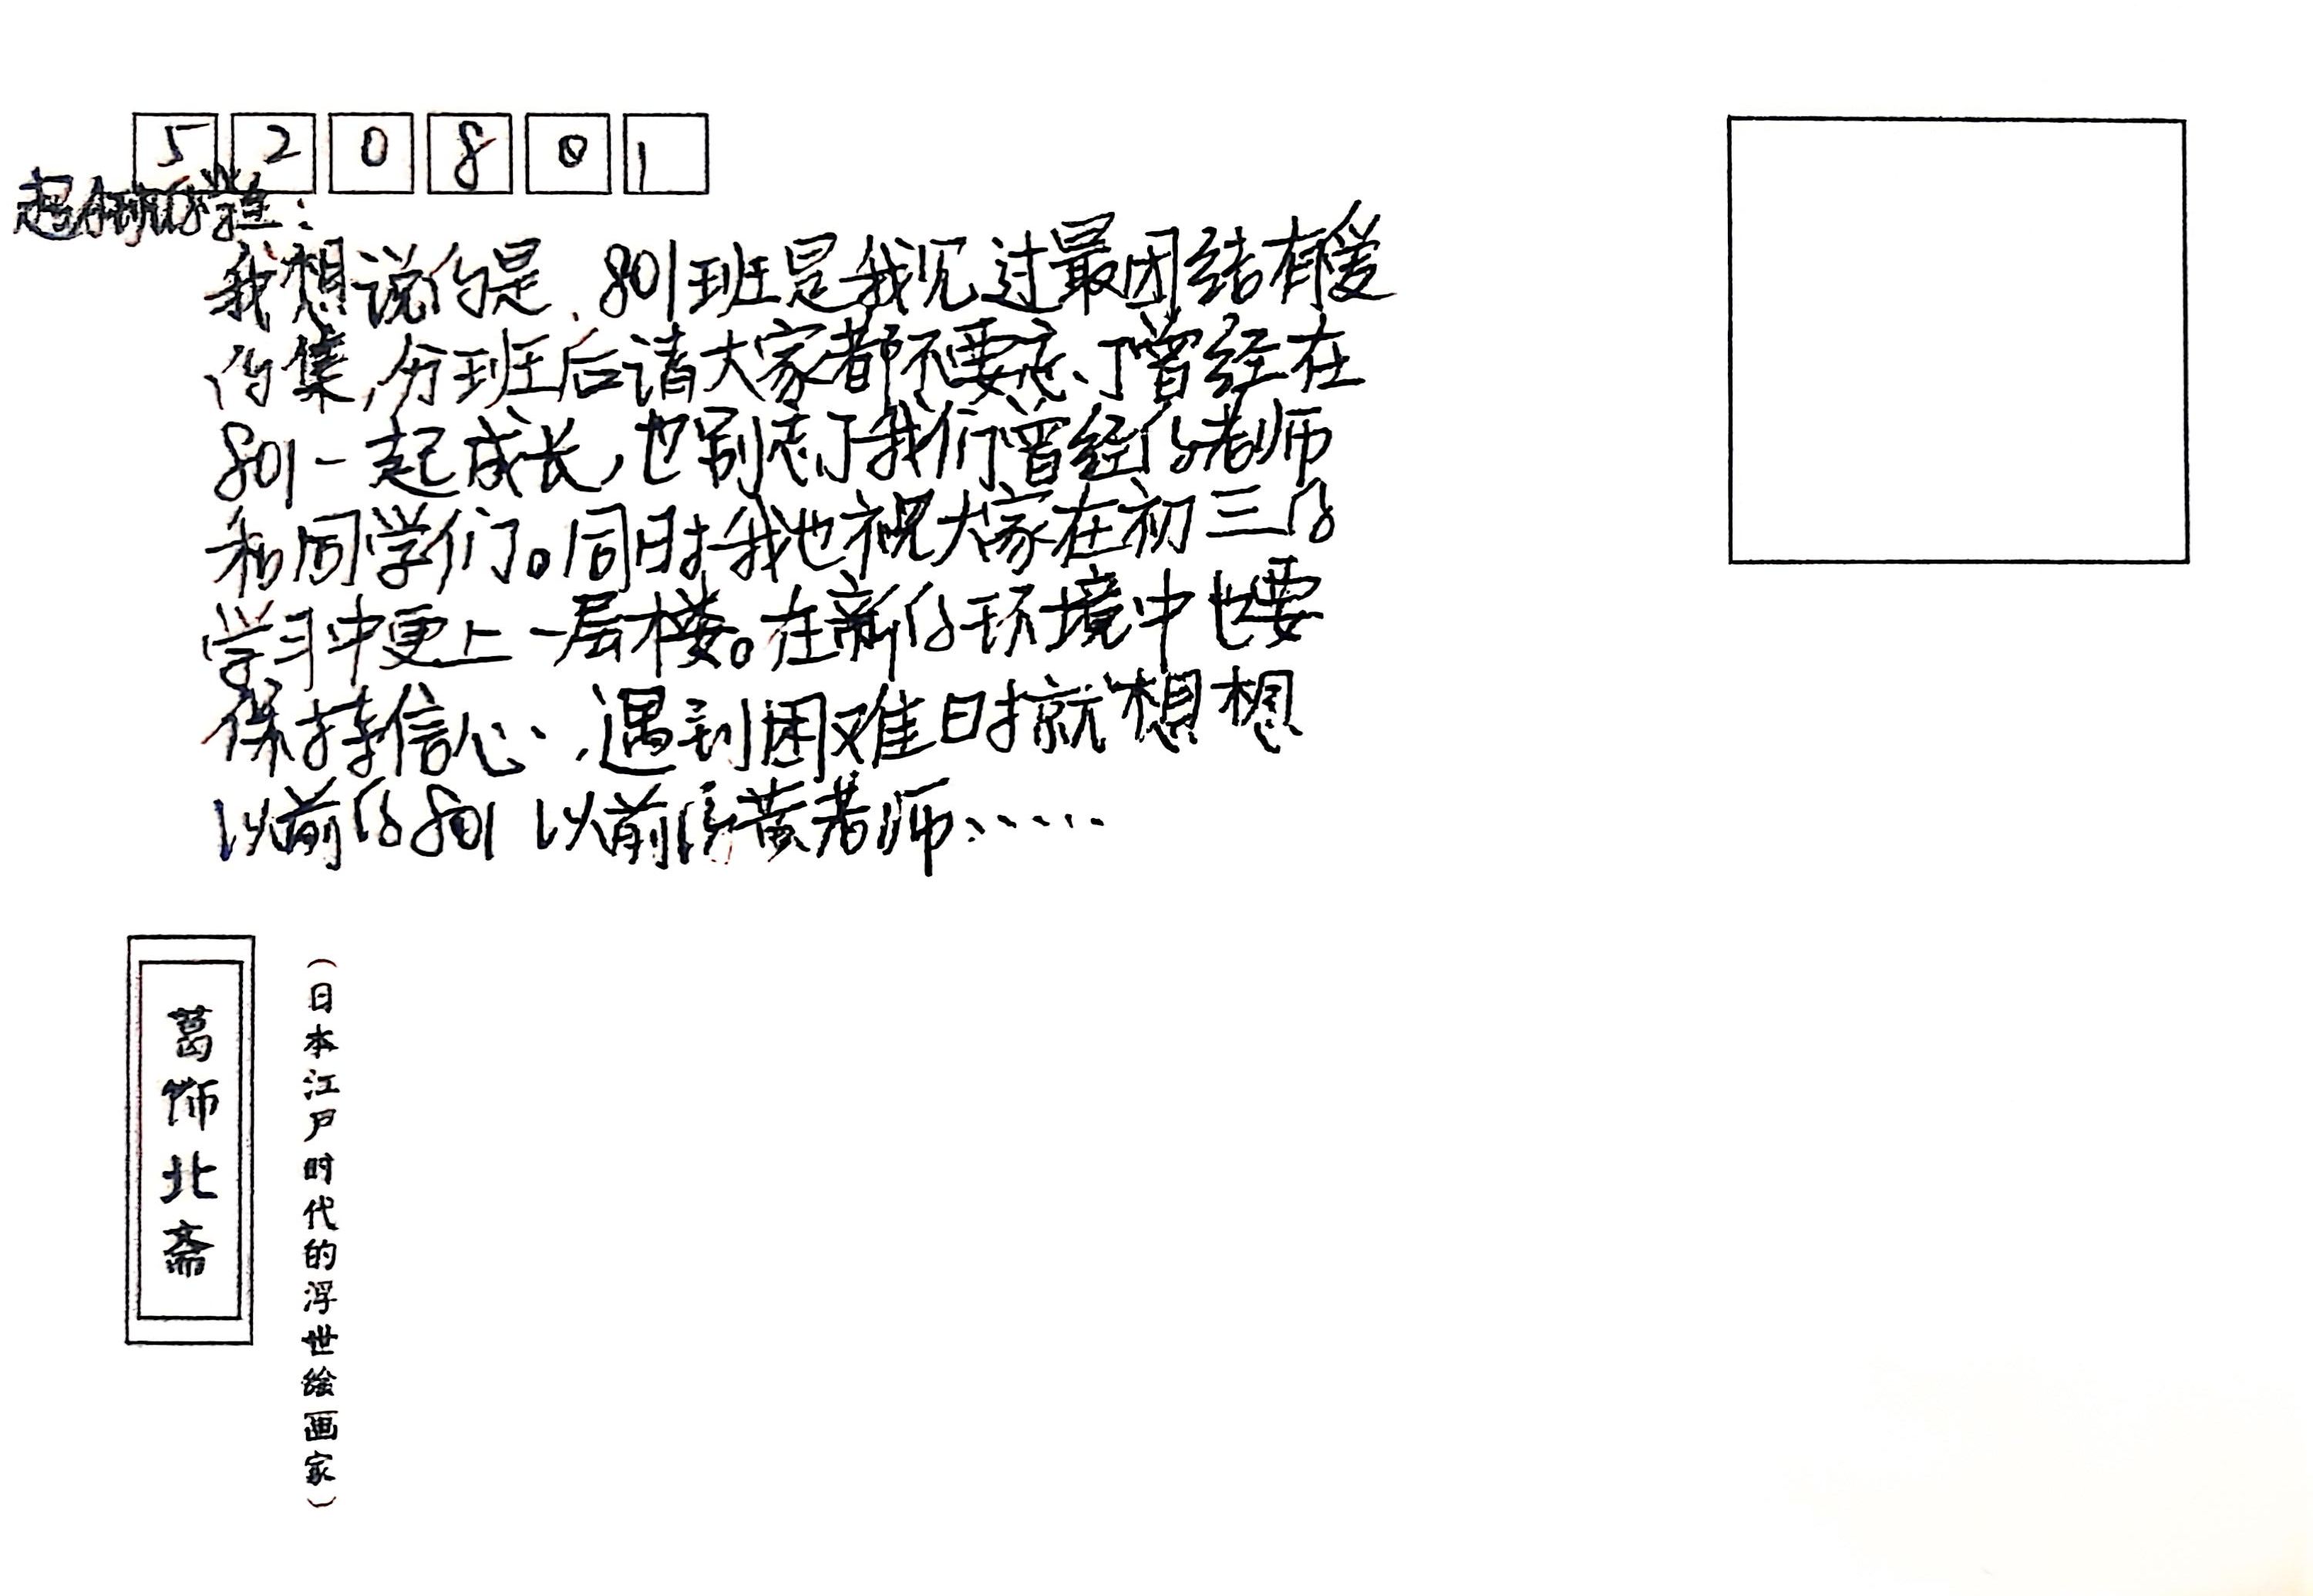 520801
我想说的是,801班是我见过最团结有爱
的集,分班后请大家都不要忘了曾经在
801一起成长,也别忘了我们曾经的老师
和同学们。同时我也祝大家在初三的
学习中更上一层楼。在新的环境中也要
保持信心,遇到困难时就想想
以前的801 以前的黄老师……
葛饰北斋
(日本江户时代的浮世绘画家)